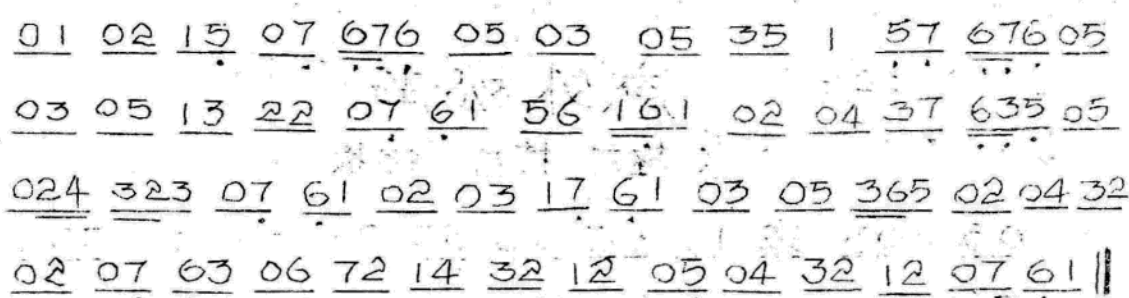 01 02 15 07 676 05 03 05 35 1 57 676 05
03 05 13 22 07 61 56 161 02 04 37 635 05
024 323 07 61 02 03 17 61 03 05 365 02 04 32
02 07 63 06 72 14 32 12 05 04 32 12 07 61